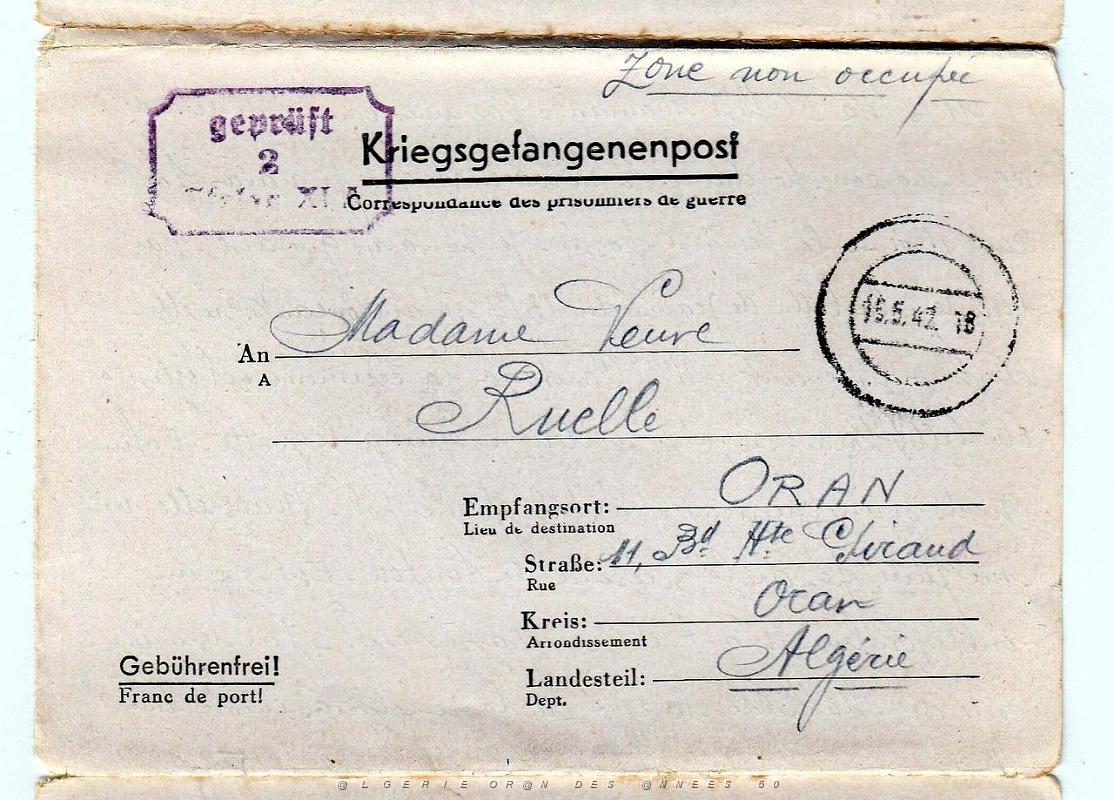 Zone non occupée
geprüft
2
XI A
Kriegsgefangenenpost
Correspondance des prisonniers de guerre
15.5.42. 18
Madame Veuve
An
A
Ruelle
Empfangsort: ORAN
Lieu de destination
Straße: 11, Bd. Hte Giraud
Rue
Kreis: Oran
Arrondissement
Landesteil: Algérie
Dept.
Gebührenfrei!
Franc de port!
@LGERIE OR@N DES @NNEES 50